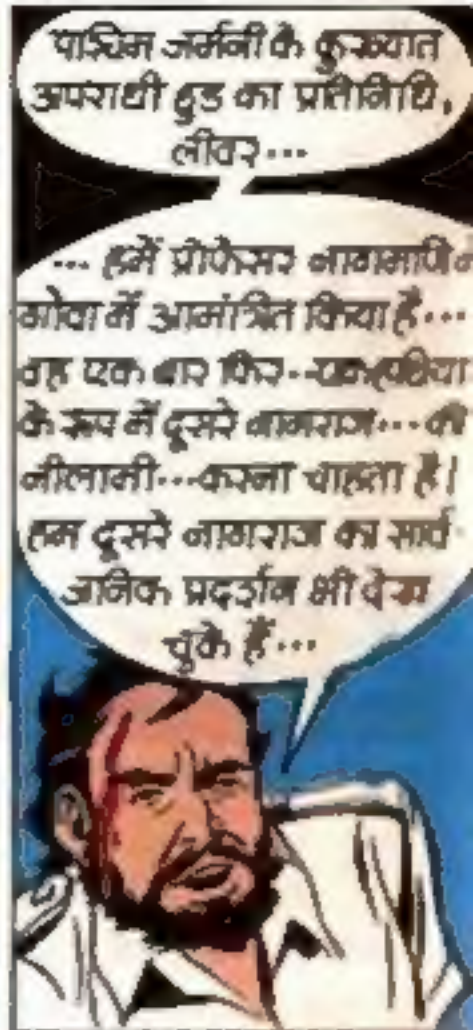 पश्चिम जर्मनी के कुख्यात
अपराधी हुड का प्रतिनिधि,
लीवर...
... हमें प्रोफेसर नागमणि ने
गोवा में आमंत्रित किया है...
वह एक बार फिर.. एक हथियार
के रूप में दूसरे नागराज... की
नीलामी... करना चाहता है।
हम दूसरे नागराज का सार्व-
जनिक प्रदर्शन भी देख
चुके हैं...